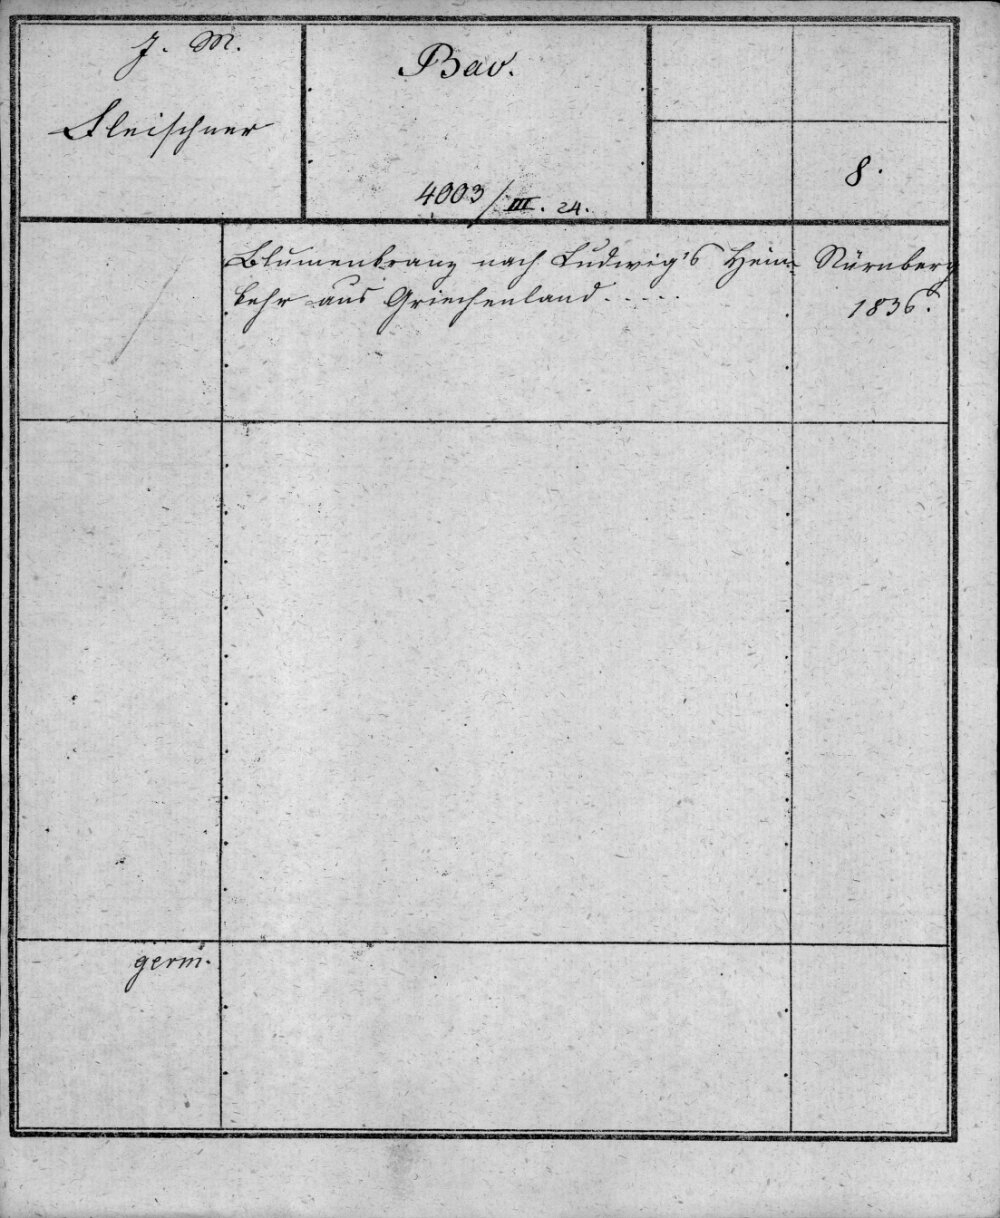 J. M.
Fleischner
Bav.
4003/III. 24.
8.
Blumenkranz nach Ludwig's Heim-
kehr aus Griechenland.....
Nürnberg
1836.
germ.